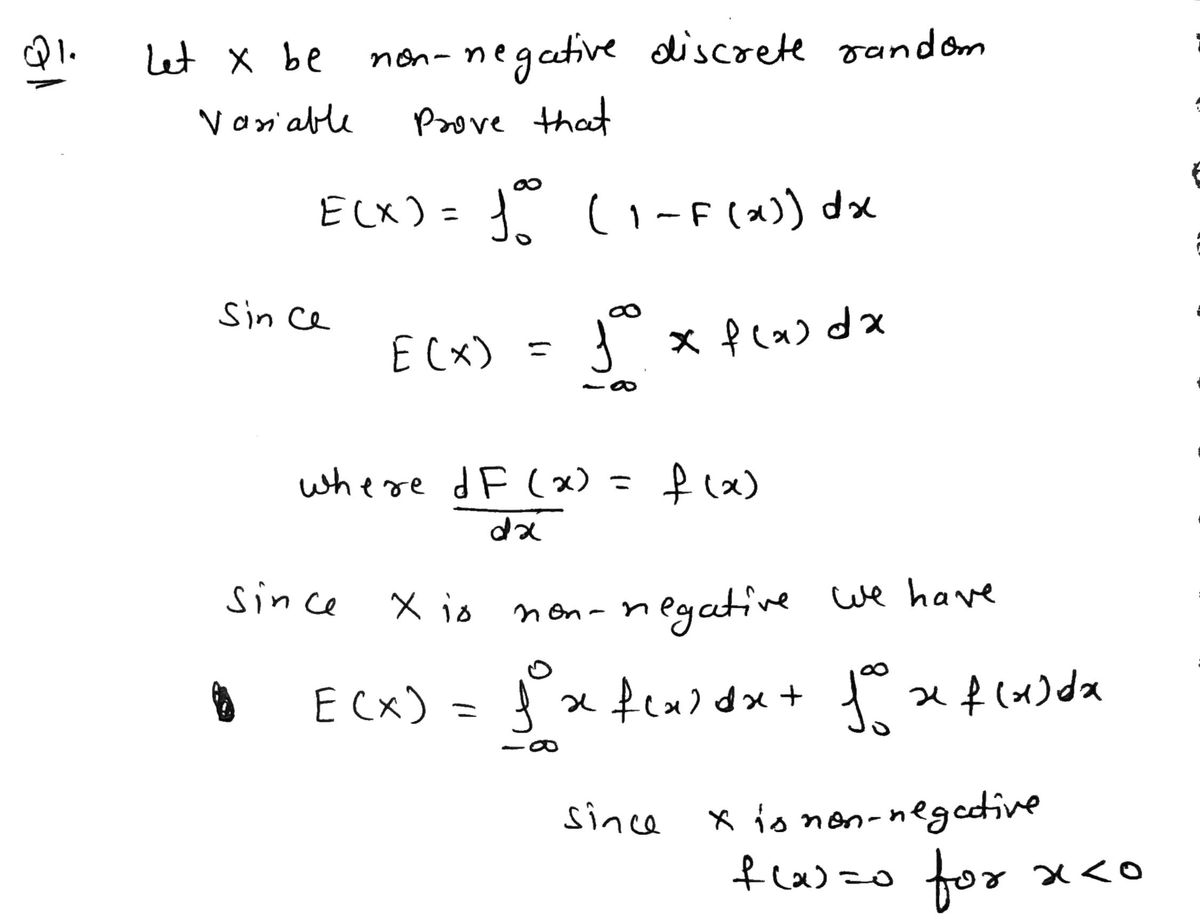 Q1. Let x be non-negative discrete random
Variable Prove that
E(X) = ∫₀^∞ (1-F(x)) dx
Since
E(X) = ∫_{-∞}^∞ x f(x) dx
where dF(x)/dx = f(x)
Since X is non-negative we have
E(X) = ∫_{-∞}^0 x f(x) dx + ∫₀^∞ x f(x) dx
Since x is non-negative
f(x)=0 for x<0